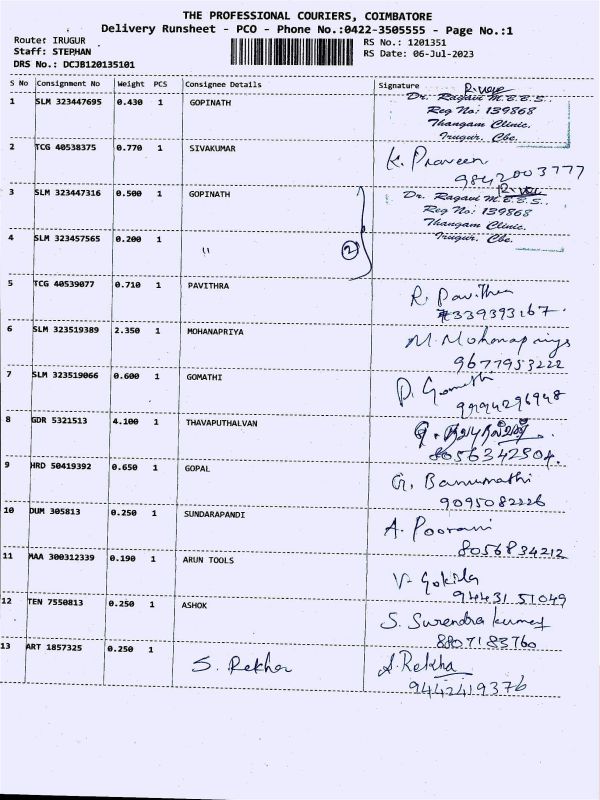 THE PROFESSIONAL COURIERS, COIMBATORE
Delivery Runsheet - PCO - Phone No.:0422-3505555 - Page No.:1
Route: IRUGUR RS No.: 1201351
Staff: STEPHAN RS Date: 06-Jul-2023
DRS No.: DCJB120135101
S No Consignment No Weight PCS Consignee Details Signature
1 SLM 323447695 0.430 1 GOPINATH
Dr. Ragavi M.B.B.S.,
Reg No: 139868
Thangam Clinic,
Irugur, Cbe.
2 TCG 40538375 0.770 1 SIVAKUMAR K. Praveen
9842003777
3 SLM 323447316 0.500 1 GOPINATH
Dr. Ragavi M.B.B.S.,
Reg No: 139868
Thangam Clinic,
Irugur, Cbe.
4 SLM 323457565 0.200 1 " 2
5 TCG 40539077 0.710 1 PAVITHRA R. Pavithra
339393167
6 SLM 323519389 2.350 1 MOHANAPRIYA M. Mohanapriya
9677953222
7 SLM 323519066 0.600 1 GOMATHI P. Gomathi
9994296948
8 GDR 5321513 4.100 1 THAVAPUTHALVAN
8056342504.
9 HRD 50419392 0.650 1 GOPAL G. Banumathi
9095082226
10 DUM 305813 0.250 1 SUNDARAPANDI A. Poorani
8056834212
11 MAA 300312339 0.190 1 ARUN TOOLS V. Gokila
94431 51049
12 TEN 7550813 0.250 1 ASHOK S. Surendra kumar
8807183760
13 ART 1857325 0.250 1 S. Rekha S. Rekha
9442419376